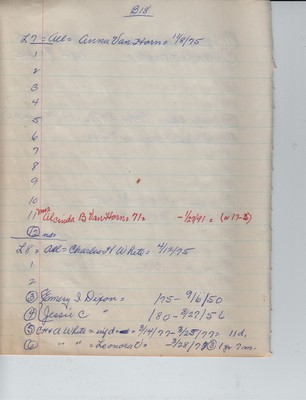 B18
L7 = All = Anna Van Horn = 11/8/75
1
2
3
4
5
6
7
8
9
10
11 Mrs Alcinda B Van Horn = 71 = -1/27/41 = (W 17-3)
12 nd=
L8 = All = Charles H White = 4/17/75
1
2
3 Emery I Dixon = /75 - 9/6/50
4 Jessie C " /80 - 3/27/56
5 CH + A White = = 3/4/77 - 3/25/77 = 11 d.
6 " " = Leonora V = -3/28/79 1 yr 7 m.